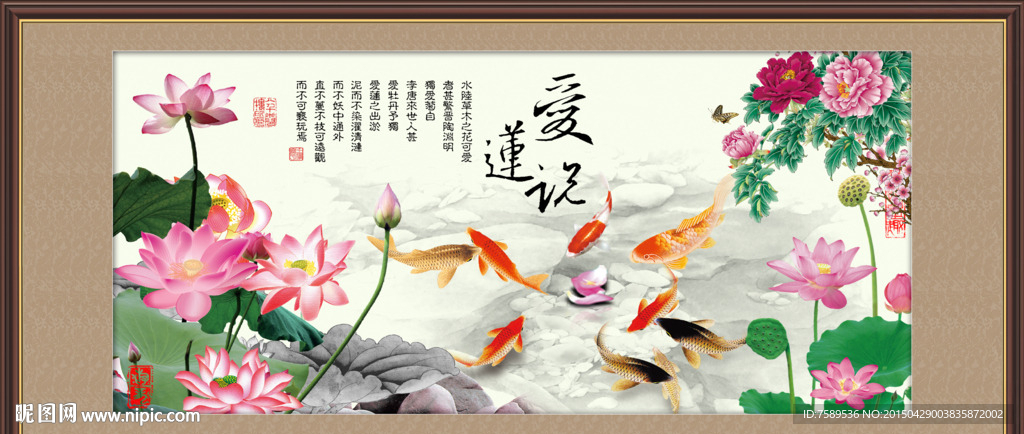 愛蓮说
水陸草木之花可愛
者甚繁晋陶淵明
獨愛菊自
李唐來世人甚
愛牡丹予獨
愛蓮之出淤
泥而不染濯清漣
而不妖中通外
直不蔓不枝可遠觀
而不可褻玩焉
昵图网 www.nipic.com
ID:7589536 NO:20150429003835872002